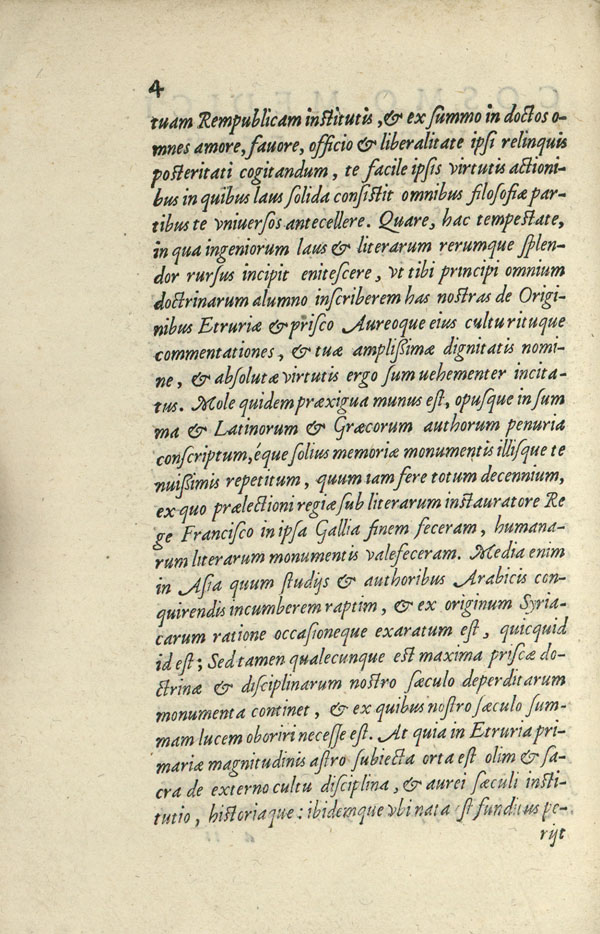 4
tuam Rempublicam institutis, & ex summo in doctos o-
mnes amore, fauore, officio & liberalitate ipsi relinquis
posteritati cogitandum, te facile ipsis virtutis actioni-
bus in quibus laus solida consistit omnibus filosofiæ par-
tibus te vniuersos antecellere. Quare, hac tempestate,
in qua ingeniorum laus & literarum rerumque splen-
dor rursus incipit enitescere, vt tibi principi omnium
doctrinarum alumno inscriberem has nostras de Origi-
nibus Etruriæ & prisco Aureoque eius cultu rituque
commentationes, & tuæ amplissimæ dignitatis nomi-
ne, & absolutæ virtutis ergo sum uehementer incita-
tus. Mole quidem præxigua munus est, opusque in sum
ma & Latinorum & Græcorum authorum penuria
conscriptum, éque solius memoriæ monumentis illisque te
nuissimis repetitum, quum iam fere totum decennium,
ex quo prælectioni regiæ sub literarum instauratore Re
ge Francisco in ipsa Gallia finem feceram, humana-
rum literarum monumentis valefeceram. Media enim
in Asia quum studijs & authoribus Arabicis con-
quirendis incumberem raptim, & ex originum Syria-
carum ratione occasioneque exaratum est, quicquid
id est; Sed tamen qualecunque est maxima priscæ do-
ctrinæ & disciplinarum nostro sæculo deperditarum
monumenta continet, & ex quibus nostro sæculo sum-
mam lucem oboriri necesse est. At quia in Etruria pri-
mariæ magnitudinis astro subiecta orta est olim & sa-
cra de externo cultu disciplina, & aurei sæculi insti-
tutio, historiaque: ibidemque vbi nata est funditus pe-
rijt